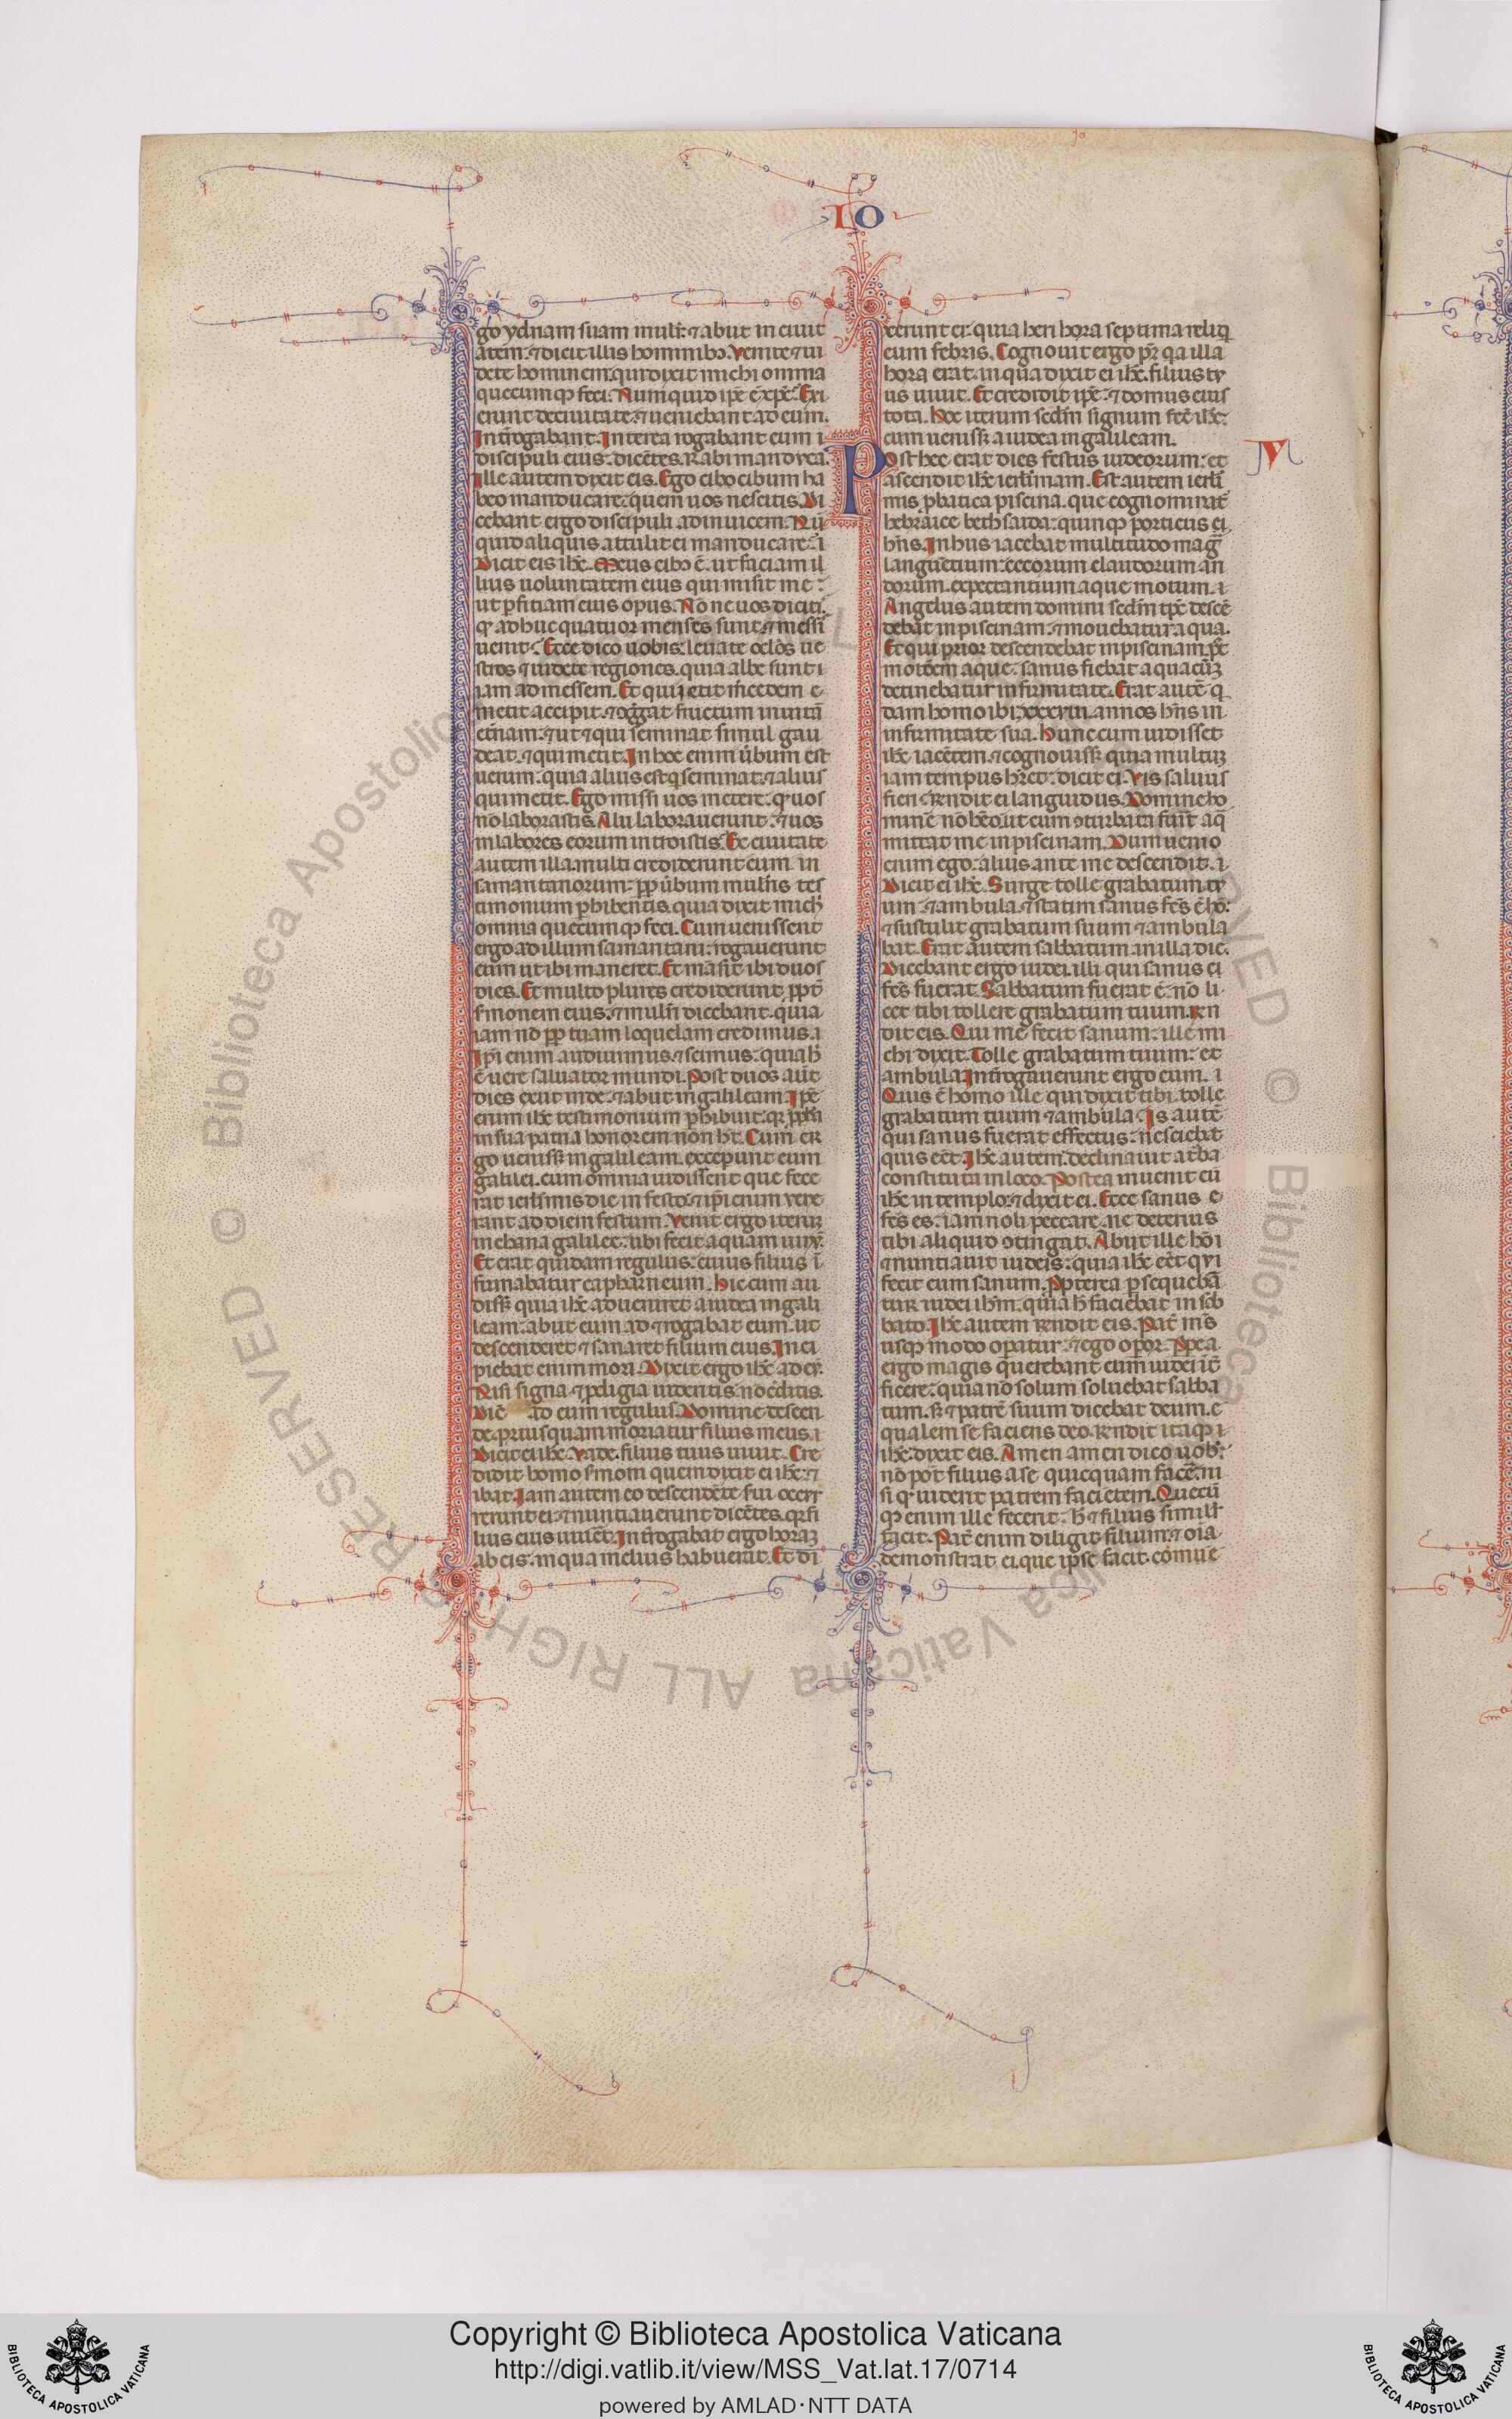 IO
go ydriam suam mulr̃. ⁊ abiit in ciuit
atem. ⁊ dicit illis hominibꝰ. Venite ⁊ ui
dete hominem. qui dixit michi omnia
quecumqꝫ feci. Numquid ip̃e ẽ xp̃c. Exi
erunt de ciuitate. ⁊ ueniebant ad eum.
Int̃rogabant. Interea rogabant eum i
discipuli eius. dicẽtes. Rabi manduca.
Ille autem dixit eis. Ego cibo cibum ha
beo manducare. quem uos nescitis. Di
cebant ergo discipuli adinuicem. Nũ
quid aliquis attulit ei manducare. i
Dicit eis ihc̃. Meus cibꝰ ẽ. ut faciam il
lius uoluntatem eius qui misit me.
ut p̃ficiam eius opus. Nõ ne uos diciti
qꝫ adhuc quatuor menses sunt. ⁊ messi
uenit. Ecce dico uobis. leuate oclõs ue
stros ⁊ uidete regiones. quia albe sunt i
iam ad messem. Et qui metit m̃cedem
metit accipit. ⁊ ɔg̃gat fructum in uitã
et̃nam. ⁊ ut ⁊ qui seminat simul gau
deat. ⁊ qui metit. In hoc enim ũbum est
uerum. quia alius est q̃ seminat. ⁊ alius
qui metit. Ego missi uos metere. qꝫ uos
nõ laborastis. Alii laborauerunt. ⁊ uos
in labores eorum introistis. Ex ciuitate
autem illa. multi crediderunt eum in
samaritanorum. ꝓp̃ ũbum muliẽis tes
timonium ꝑhibentis. quia dixit mich̃
omnia quecumqꝫ feci. Cum uenissent
ergo ad illum samaritani. rogauerunt
eum ut ibi maneret. Et mãsit ibi duos
dies. Et multo plures crediderunt ꝓpt̃
s̃monem eius. ⁊ mulĩ dicebant. quia
iam nõ ꝓp̃ tuam loquelam credimus. i
Ip̃i enim audiuimus. ⁊ scimus. quia h̃
ẽ uere saluator mundi. Post duos aũt
dies exiit inde. ⁊ abiit in galileam. Ip̃e
enim ihc̃ testimonium ꝑhibuit. qꝛ ꝓph̃a
in sua patria honorem non h̃t. Cum er
go uenissꝫ in galileam. exceperunt eum
galilei. cum omnia uidissent que fece
rat ierlĩmis die in festo. ⁊ ip̃i enim uene
rant ad diem festum. Venit ergo iterũ
in chana galilee. ubi fecit aquam uinũ.
Et erat quidam regulus. cuius filius ĩ
firmabatur capharneum. Hic cum au
dissꝫ quia ihc̃ adueniret a iudea in gali
leam. abiit eum ad ⁊ rogabat eum. ut
descenderet ⁊ sanaret filium eius. Inci
piebat enim mori. Dixit ergo ihc̃ ad eũ.
Nisi signa ⁊ ꝓdigia uideritis. nõ c̃ditis.
Dic̃ ad eum regulus. Domine descen
de. priusquam moriatur filius meus. i
Dicit ei ihc̃. Vade. filius tuus uiuit. Cre
didit homo s̃moni quem dixit ei ihc̃. ⁊
ibat. Iam autem eo descendẽte s̃ui occur
rerunt ei. ⁊ nuntiauerunt dicẽtes. qꝫ fi
lius eius uiuẽt. Int̃rogabat ergo horaꝫ
ab eis. in qua melius habuerat. Et di
xerunt ei. quia heri hora septima reliq̃
eum febris. Cognouit ergo pr̃. q̃a illa
hora erat. in qũa dixit ei ihc̃. filius tu
us uiuit. Et credidit ip̃e. ⁊ domus eius
tota. Hoc iterum secdm̃ signum fec̃ ihc̃.
cum uenissꝫ a iudea in galileam.
Post hec erat dies festus iudeorum. et
V
ascendit ihc̃ ierlĩmam. Est autem ierlĩ
mis ꝓbatica piscina. que cognominat̃
hebraice bethsaida. quinqꝫ porticus ei.
hñs. In hiis iacebat multitudo mag̃
languẽtium. cecorum claudorum ari
dorum. expectantium aque motum. i
Angelus autem domini secdm̃ tp̃c descẽ
debat in piscinam. ⁊ mouebatur aqua.
Et qui prior descendebat in piscinam p̃t
motõem aque. sanus fiebat a quacũꝫ
detinebatur infirmitate. Erat autẽ q
dam homo ibi xxxviii. annos hñs in
infirmitate sua. Hunc cum uidisset
ihc̃ iacẽtem. ⁊ cognouissꝫ quia multuꝫ
iam tempus hr̃et. dicit ei. Vis saluus
fieri. Rñdit ei languidus. Domine ho
minẽ nõ hẽo. ut cum ɔturbata fuĩt aq̃
mittat me in piscinam. Dum uenio
enim ego. alius ante me descendit. i
Dicit ei ihc̃. Surge tolle grabatum tu
um. ⁊ ambula. ⁊ statim sanus fc̃s ẽ hõ.
⁊ sustulit grabatum suum ⁊ ambula
bat. Erat autem sabbatum in illa die.
Dicebant ergo iudei. illi qui sanus ei
fc̃s fuerat. Sabbatum fuerat ẽ. nõ li
cet tibi tollere grabatum tuum. Rñ
dit eis. Qui me fecit sanum. ille mi
chi dixit. Tolle grabatum tuum. et
ambula. Int̃rogauerunt ergo eum. i
Quis ẽ homo ille qui dixit tibi. tolle
grabatum tuum ⁊ ambula. Is autẽ
qui sanus fuerat effectus. nesciebat
quis eẽt. Ihc̃ autem. declinauit a t̃ba
constituta in loco. Postea inuenit eũ
ihc̃ in templo. ⁊ dixit ei. Ecce sanus e
fc̃s es. iam noli peccare. ne deterius
tibi aliquid ɔtingat. Abiit ille hõ i
⁊ nuntiauit iudeis. quia ihc̃ eẽt qui
fecit eum sanum. Ꝓpterea ꝑsequebã
tur iudei ihm̃. quia h̃ faciebat in sab
bato. Ihc̃ autem rñdit eis. Pat̃ m̃s
usqꝫ modo oꝑatur. ⁊ ego oꝑor. Ꝓp̃ea
ergo magis querebant eum iudei iñt
ficere. quia nõ solum soluebat sabba
tum. sꝫ ⁊ patrẽ suum dicebat deum. e
qualem se faciens deo. Rñdit itaqꝫ i
ihc̃. dixit eis. Amen amen dico uob̃.
nõ pot̃ filius a se quicquam facẽ. ni
si qꝫ uiderit patrem faciẽtem. Quecũ
qꝫ enim ille fecerit. h̃ ⁊ filius simiĩl
facit. Pat̃ enim diligit filium. ⁊ oĩa
demonstrat ei. que ip̃se facit. cõmue
Copyright © Biblioteca Apostolica Vaticana
http://digi.vatlib.it/view/MSS_Vat.lat.17/0714
powered by AMLAD·NTT DATA
BIBLIOTECA APOSTOLICA VATICANA
BIBLIOTECA APOSTOLICA VATICANA
© Biblioteca Apostolica Vaticana ALL RIGHTS RESERVED